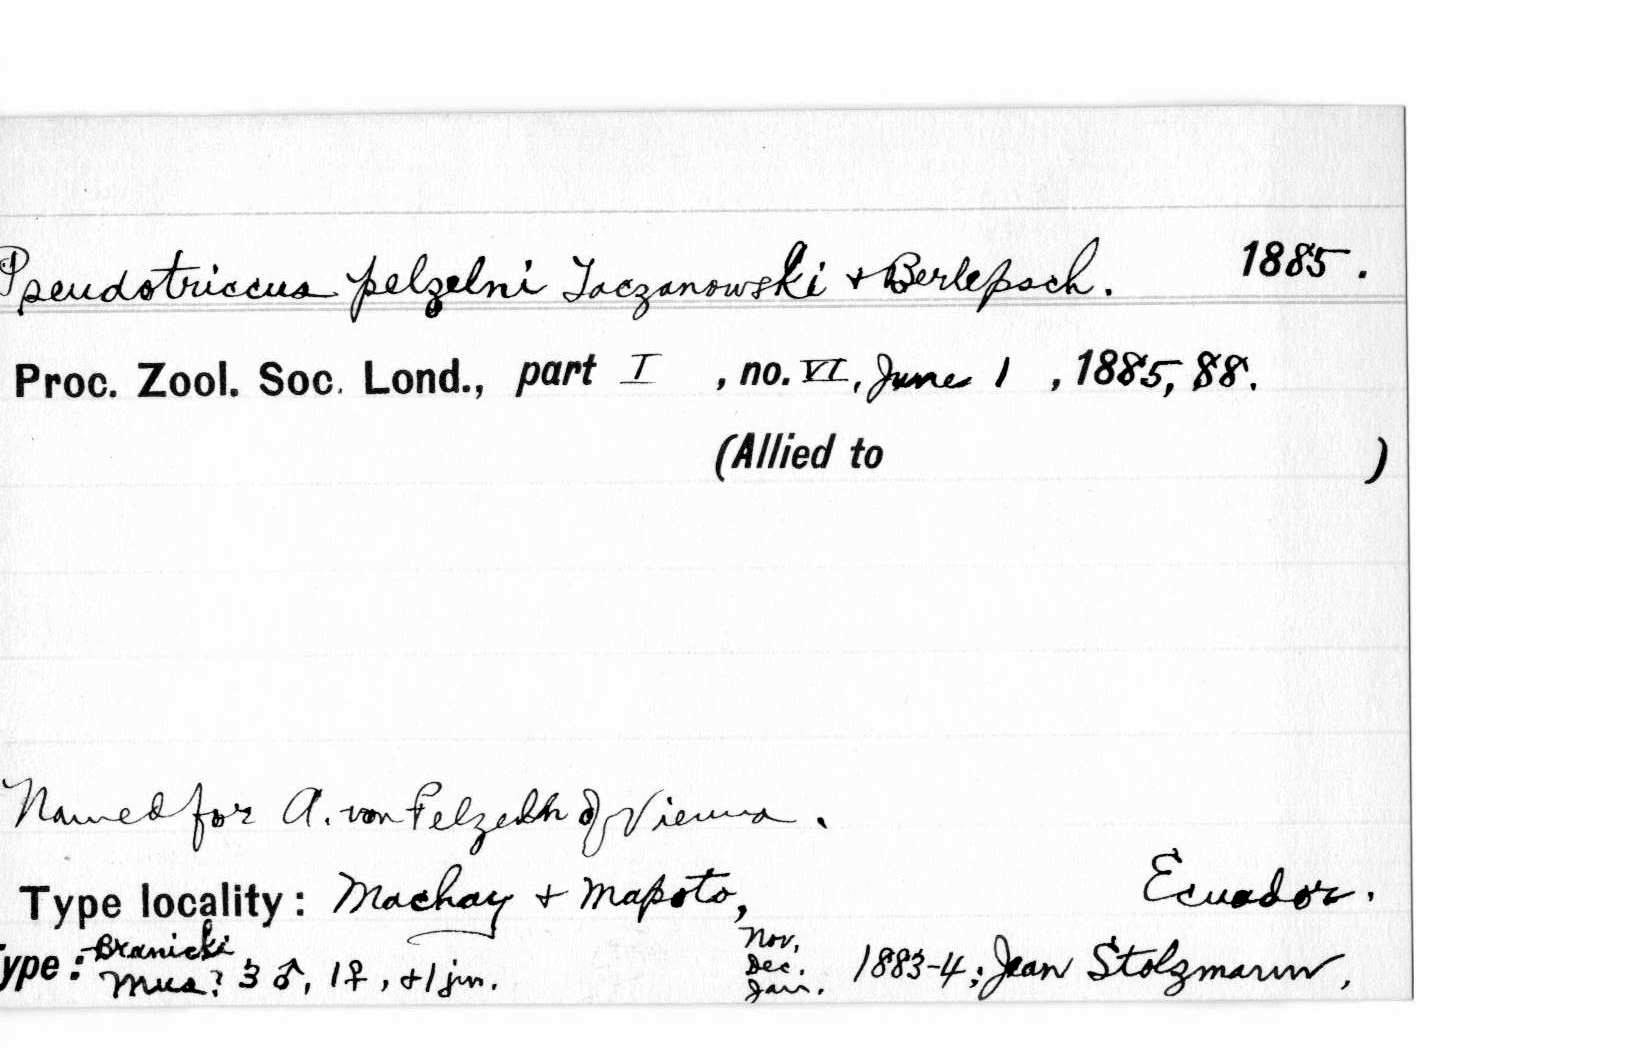 Pseudotriccus pelzelni Taczanowski & Berlepsch. 1885.
Proc. Zool. Soc. Lond., part I, no. VI, June 1, 1885, 88.
(Allied to )
Named for A. von Pelzeln of Vienna.
Type locality: Machay & Mapoto, Ecuador.
ype: Branicki Mus? 3 ♂, 1 ♀, & 1 jun. Nov, Dec. Jan. 1883-4; Jean Stolzmann,